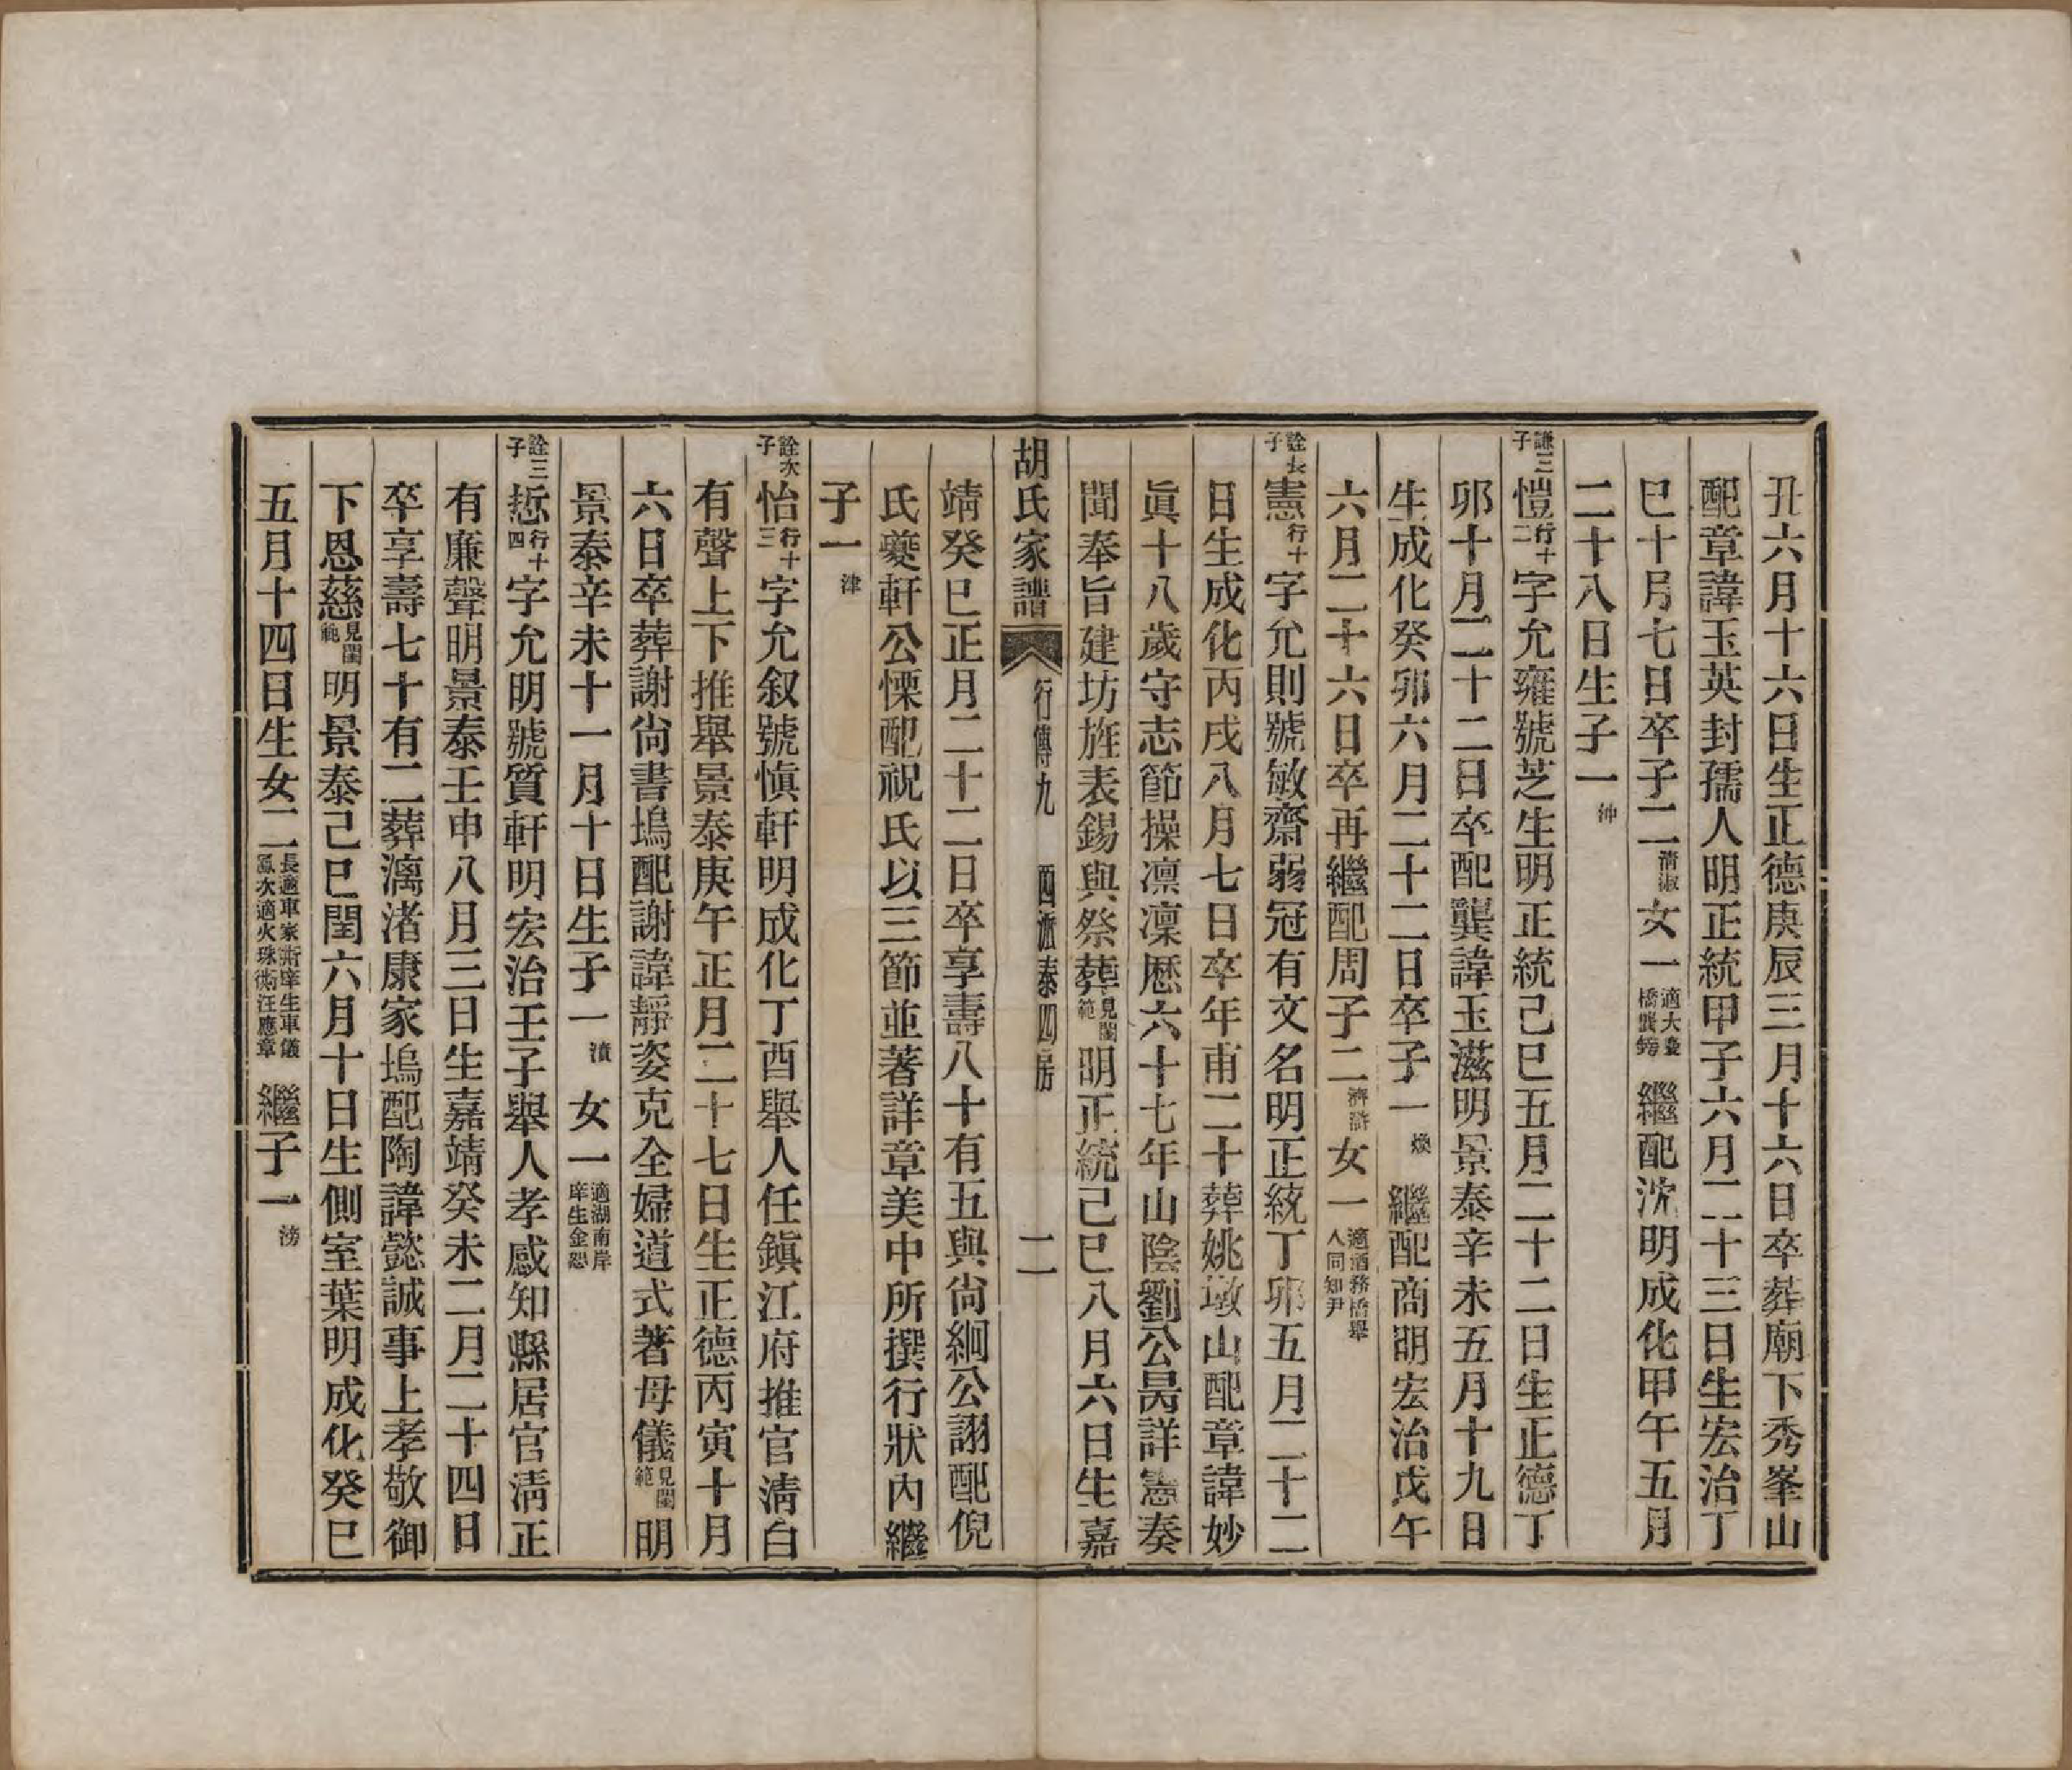 丑六月十六日生正德庚辰三月十六日卒葬廟下秀峯山
配章諱玉英封孺人明正統甲子六月二十三日生宏治丁
巳十月七日卒子二清淑女一適大婁橋龔鎊繼配沈明成化甲午五月
二十八日生子一
謙三子愷行十二字允雍號芝生明正統己巳五月二十二日生正德丁
卯十月二十二日卒配龔諱玉滋明景泰辛未五月十九日
生成化癸卯六月二十二日卒子一煥繼配商明宏治戊午
六月二十六日卒再繼配周子二濟滸女一適酒務橋舉人同知尹
詮長子憲行十字允則號敏齋弱冠有文名明正統丁卯五月二十二
日生成化丙戌八月七日卒年甫二十葬姚墩山配章諱妙
眞十八歲守志節操凛凜歷六十七年山陰劉公昺詳憲奏
聞奉旨建坊旌表錫與祭葬見閫範明正統己巳八月六日生嘉
胡氏家譜 行傳九 四派泰四房 二
靖癸巳正月二十二日卒享壽八十有五與尙絅公詡配倪
氏夔軒公慄配祝氏以三節並著詳章美中所撰行狀內繼
子一津
詮次子怡行十三字允叙號愼軒明成化丁酉舉人任鎭江府推官淸白
有聲上下推舉景泰庚午正月二十七日生正德丙寅十月
六日卒葬謝尙書塢配謝諱靜姿克全婦道式著母儀見閫範明
景泰辛未十一月十日生子一濆女一適湖南岸庠生金恕
詮三子悊行十四字允明號質軒明宏治壬子舉人孝感知縣居官淸正
有廉聲明景泰壬申八月三日生嘉靖癸未二月二十四日
卒享壽七十有二葬漓渚康家塢配陶諱懿誠事上孝敬御
下恩慈見閫範明景泰己巳閏六月十日生側室葉明成化癸巳
五月十四日生女二長適車家衖庠生車儀鳳次適火珠衖汪應章繼子一滂